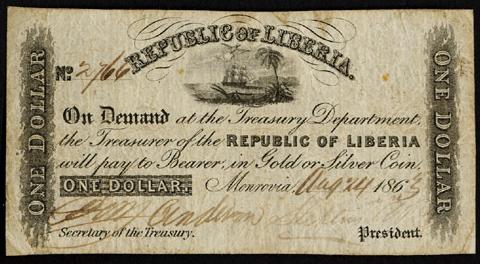 REPUBLIC OF LIBERIA.
No. 2766
ONE DOLLAR
ONE DOLLAR
On Demand at the Treasury Department,
the Treasurer of the REPUBLIC OF LIBERIA
will pay to Bearer, in Gold or Silver Coin,
ONE DOLLAR. Monrovia, Aug 24 1863
Anderson
Secretary of the Treasury. President.